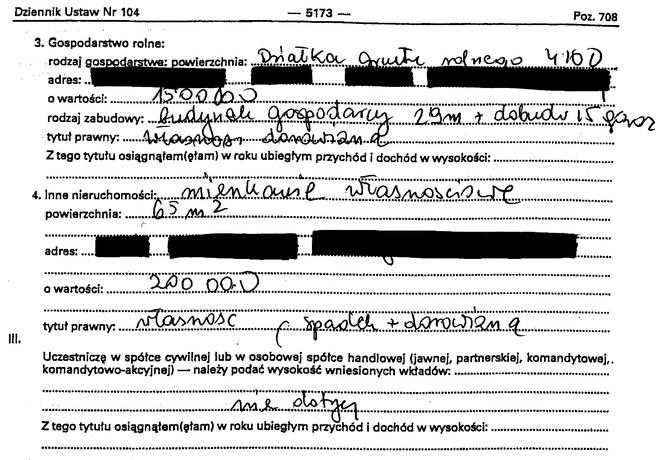 Dziennik Ustaw Nr 104 — 5173 — Poz. 708
3. Gospodarstwo rolne:
rodzaj gospodarstwa: powierzchnia: Działka gruntu rolnego 4100
adres:
o wartości: 150000
rodzaj zabudowy: budynek gospodarczy 29m + dobud 15
tytuł prawny: własność, darowizna
Z tego tytułu osiągnąłem(ęłam) w roku ubiegłym przychód i dochód w wysokości:
4. Inne nieruchomości: mieszkanie własnościowe
powierzchnia: 65 m2
adres:
o wartości: 200 000
tytuł prawny: własność ( spadek + darowizna
III.
Uczestniczę w spółce cywilnej lub w osobowej spółce handlowej (jawnej, partnerskiej, komandytowej,
komandytowo-akcyjnej) — należy podać wysokość wniesionych wkładów:
nie dotyczy
Z tego tytułu osiągnąłem(ęłam) w roku ubiegłym przychód i dochód w wysokości: